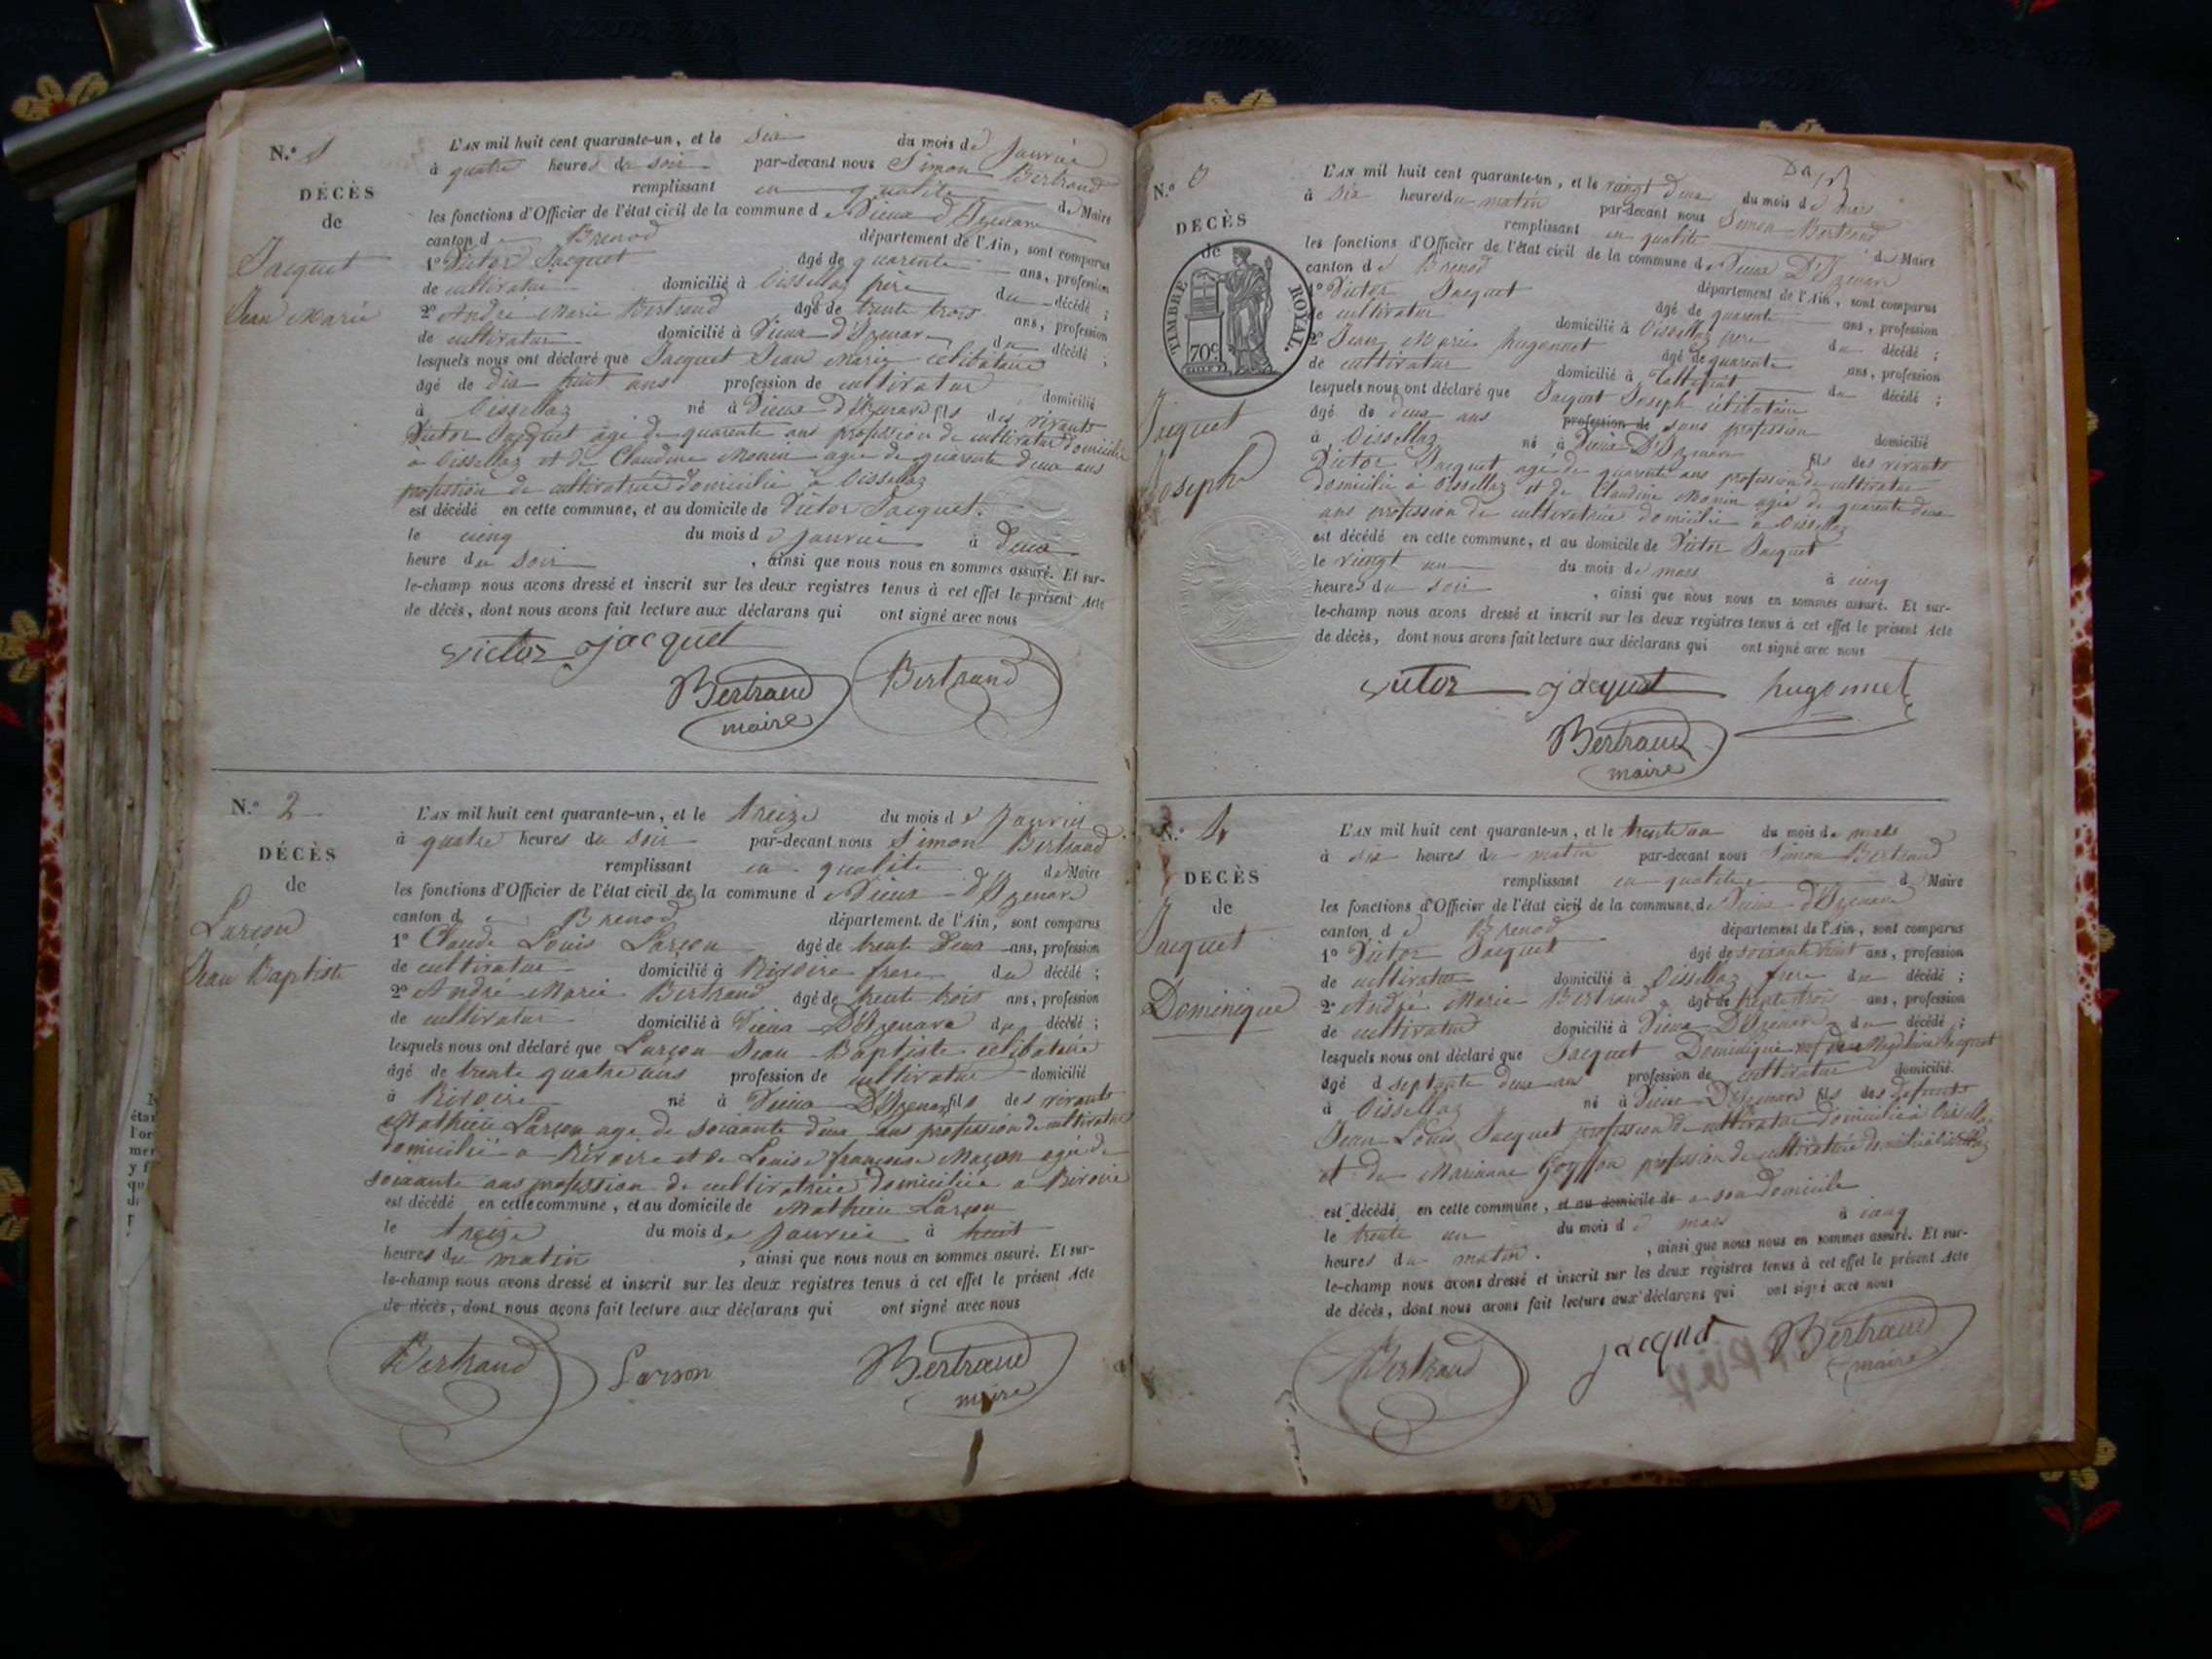 N.º 1
DÉCÈS
de
Jacquet
Jean Marie
L'AN mil huit cent quarante-un, et le six du mois de Janvier
à quatre heures du soir par-devant nous Simon Bertrand
remplissant en qualité de Maire
les fonctions d'Officier de l'état civil de la commune de Vieux d'Izenave
canton de Brenod département de l'Ain, sont comparus
1º Victor Jacquet âgé de quarente ans, profession
de cultivateur domicilié à Oissellaz père du décédé ;
2º André Marie Bertrand âgé de trente trois ans, profession
de cultivateur domicilié à Vieux d'Izenave du décédé ;
lesquels nous ont déclaré que Jacquet Jean Marie célibataire
âgé de dix huit ans profession de cultivateur domicilié
à Oissellaz né à Vieux d'Izenave fils des vivants
Victor Jacquet agé de quarente ans profession de cultivateur domicilié
à Oissellaz et de Claudine Monin agée de quarente deux ans
profession de cultivatrice domicilié à Oissellaz
est décédé en cette commune, et au domicile de Victor Jacquet.
le cinq du mois de Janvier à deux
heure du soir , ainsi que nous nous en sommes assuré. Et sur-
le-champ nous avons dressé et inscrit sur les deux registres tenus à cet effet le présent Acte
de décès, dont nous avons fait lecture aux déclarans qui ont signé avec nous
victor jacquet
Bertrand
maire
Bertrand
N.º 2
DÉCÈS
de
Larçon
Jean Baptiste
L'AN mil huit cent quarante-un, et le treize du mois de Janvier
à quatre heures du soir par-devant nous Simon Bertrand
remplissant en qualité de Maire
les fonctions d'Officier de l'état civil de la commune de Vieux d'Izenave
canton de Brenod département de l'Ain, sont comparus
1º Claude Louis Larçon âgé de trente deux ans, profession
de cultivateur domicilié à Rivoire frere du décédé ;
2º André Marie Bertrand âgé de trente trois ans, profession
de cultivateur domicilié à Vieux D'Izenave du décédé ;
lesquels nous ont déclaré que Larçon Jean Baptiste célibataire
âgé de trente quatre ans profession de cultivateur domicilié
à Rivoire né à Vieux D'Izenave fils des vivants
Mathieu Larçon agé de soixante deux ans profession de cultivateur
domicilié a Rivoire et de Louise françoise Maçon agée de
soixante ans profession de cultivatrice domiciliée a Rivoire
est décédé en cette commune, et au domicile de Mathieu Larçon
le treize du mois de Janvier à huit
heures du matin , ainsi que nous nous en sommes assuré. Et sur-
le-champ nous avons dressé et inscrit sur les deux registres tenus à cet effet le présent Acte
de décès, dont nous avons fait lecture aux déclarans qui ont signé avec nous
Bertrand Larson Bertrand
maire
N.º 3
DECÈS
de
TIMBRE ROYAL.
70 c
Jacquet
Joseph
L'AN mil huit cent quarante-un, et le vingt deux du mois de mars
à six heures du matin par-devant nous Simon Bertrand
remplissant en qualité de Maire
les fonctions d'Officier de l'état civil de la commune de Vieux D'Izenave
canton de Brenod département de l'Ain, sont comparus
1º Victor Jacquet âgé de quarente ans, profession
de cultivateur domicilié à Oissellaz pere du décédé ;
2º Jean Marie hugonnet âgé de quarente ans, profession
de cultivateur domicilié à du décédé ;
lesquels nous ont déclaré que Jacquet Joseph célibataire
âgé de deux ans profession de sans profession domicilié
à Oissellaz né à Vieux D'Izenave fils des vivants
Victor Jacquet agé de quarente ans profession de cultivateur
domicilié à Oissellaz et de Claudine Monin agée de quarente deux
ans profession de cultivatrice domicilié a Oissellaz
est décédé en cette commune, et au domicile de Victor Jacquet
le vingt un du mois de mars à cinq
heures du soir , ainsi que nous nous en sommes assuré. Et sur-
le-champ nous avons dressé et inscrit sur les deux registres tenus à cet effet le présent Acte
de décès, dont nous avons fait lecture aux déclarans qui ont signé avec nous
victor jacquet hugonnet
Bertrand
maire
N.º 4
DECÈS
de
Jacquet
Dominique
L'AN mil huit cent quarante-un, et le trente un du mois de mars
à six heures du matin par-devant nous Simon Bertrand
remplissant en qualité d Maire
les fonctions d'Officier de l'état civil de la commune de Vieux d'Izenave
canton de Brenod département de l'Ain, sont comparus
1º Victor Jacquet âgé de soixante huit ans, profession
de cultivateur domicilié à Oissellaz frere du décédé ;
2º André Marie Bertrand âgé de trente trois ans, profession
de cultivateur domicilié à Vieux D'Izenave du décédé ;
lesquels nous ont déclaré que Jacquet Dominique Magdelaine
âgé d septante deux ans profession de cultivateur domicilié
à Oissellaz né à Vieux D'Izenave fils des defunts
Jean Louis Jacquet profession de cultivateur domicilié à Oissellaz
et de Marianne Goyffon profession de cultivatrice domiciliée
est décédé en cette commune, et au domicile de a son domicile
le trente un du mois de mars à cinq
heures du matin. , ainsi que nous nous en sommes assuré. Et sur-
le-champ nous avons dressé et inscrit sur les deux registres tenus à cet effet le présent Acte
de décès, dont nous avons fait lecture aux déclarans qui ont signé avec nous
Bertrand jacquet Bertrand
maire